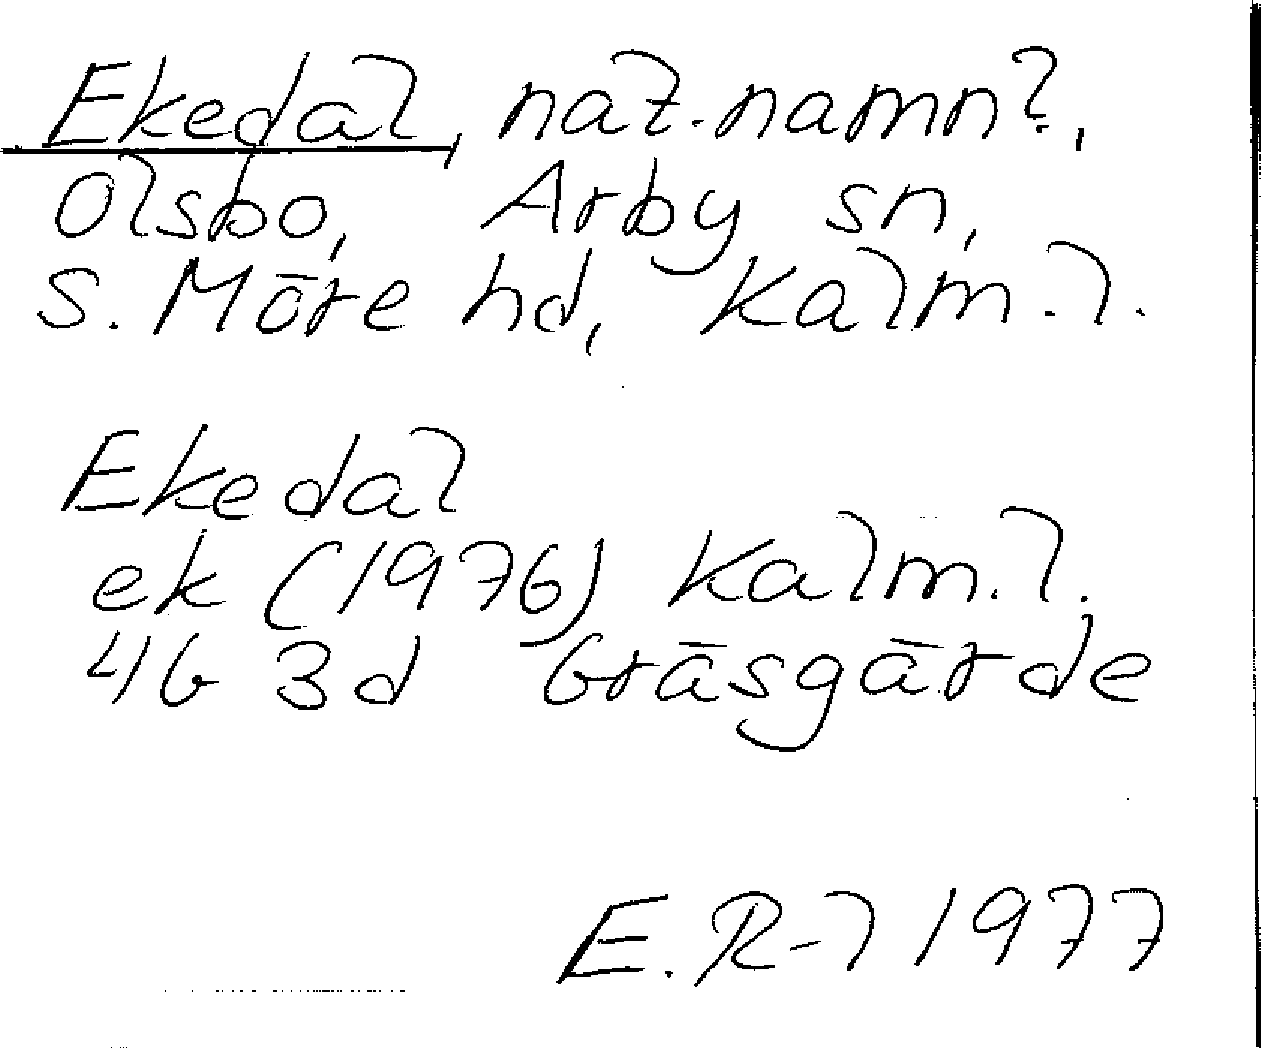 Ekedal, nat.namn?,
Olsbo, Arby sn,
S. Möre hd, Kalm.l.
Ekedal
ek (1976) Kalm.l.
4G 3d Gräsgärde
E. R-l 1977